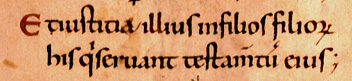 Et iustitia illius in filios filioꝝ
his q̇ seruant testam̅tu̅ eius;